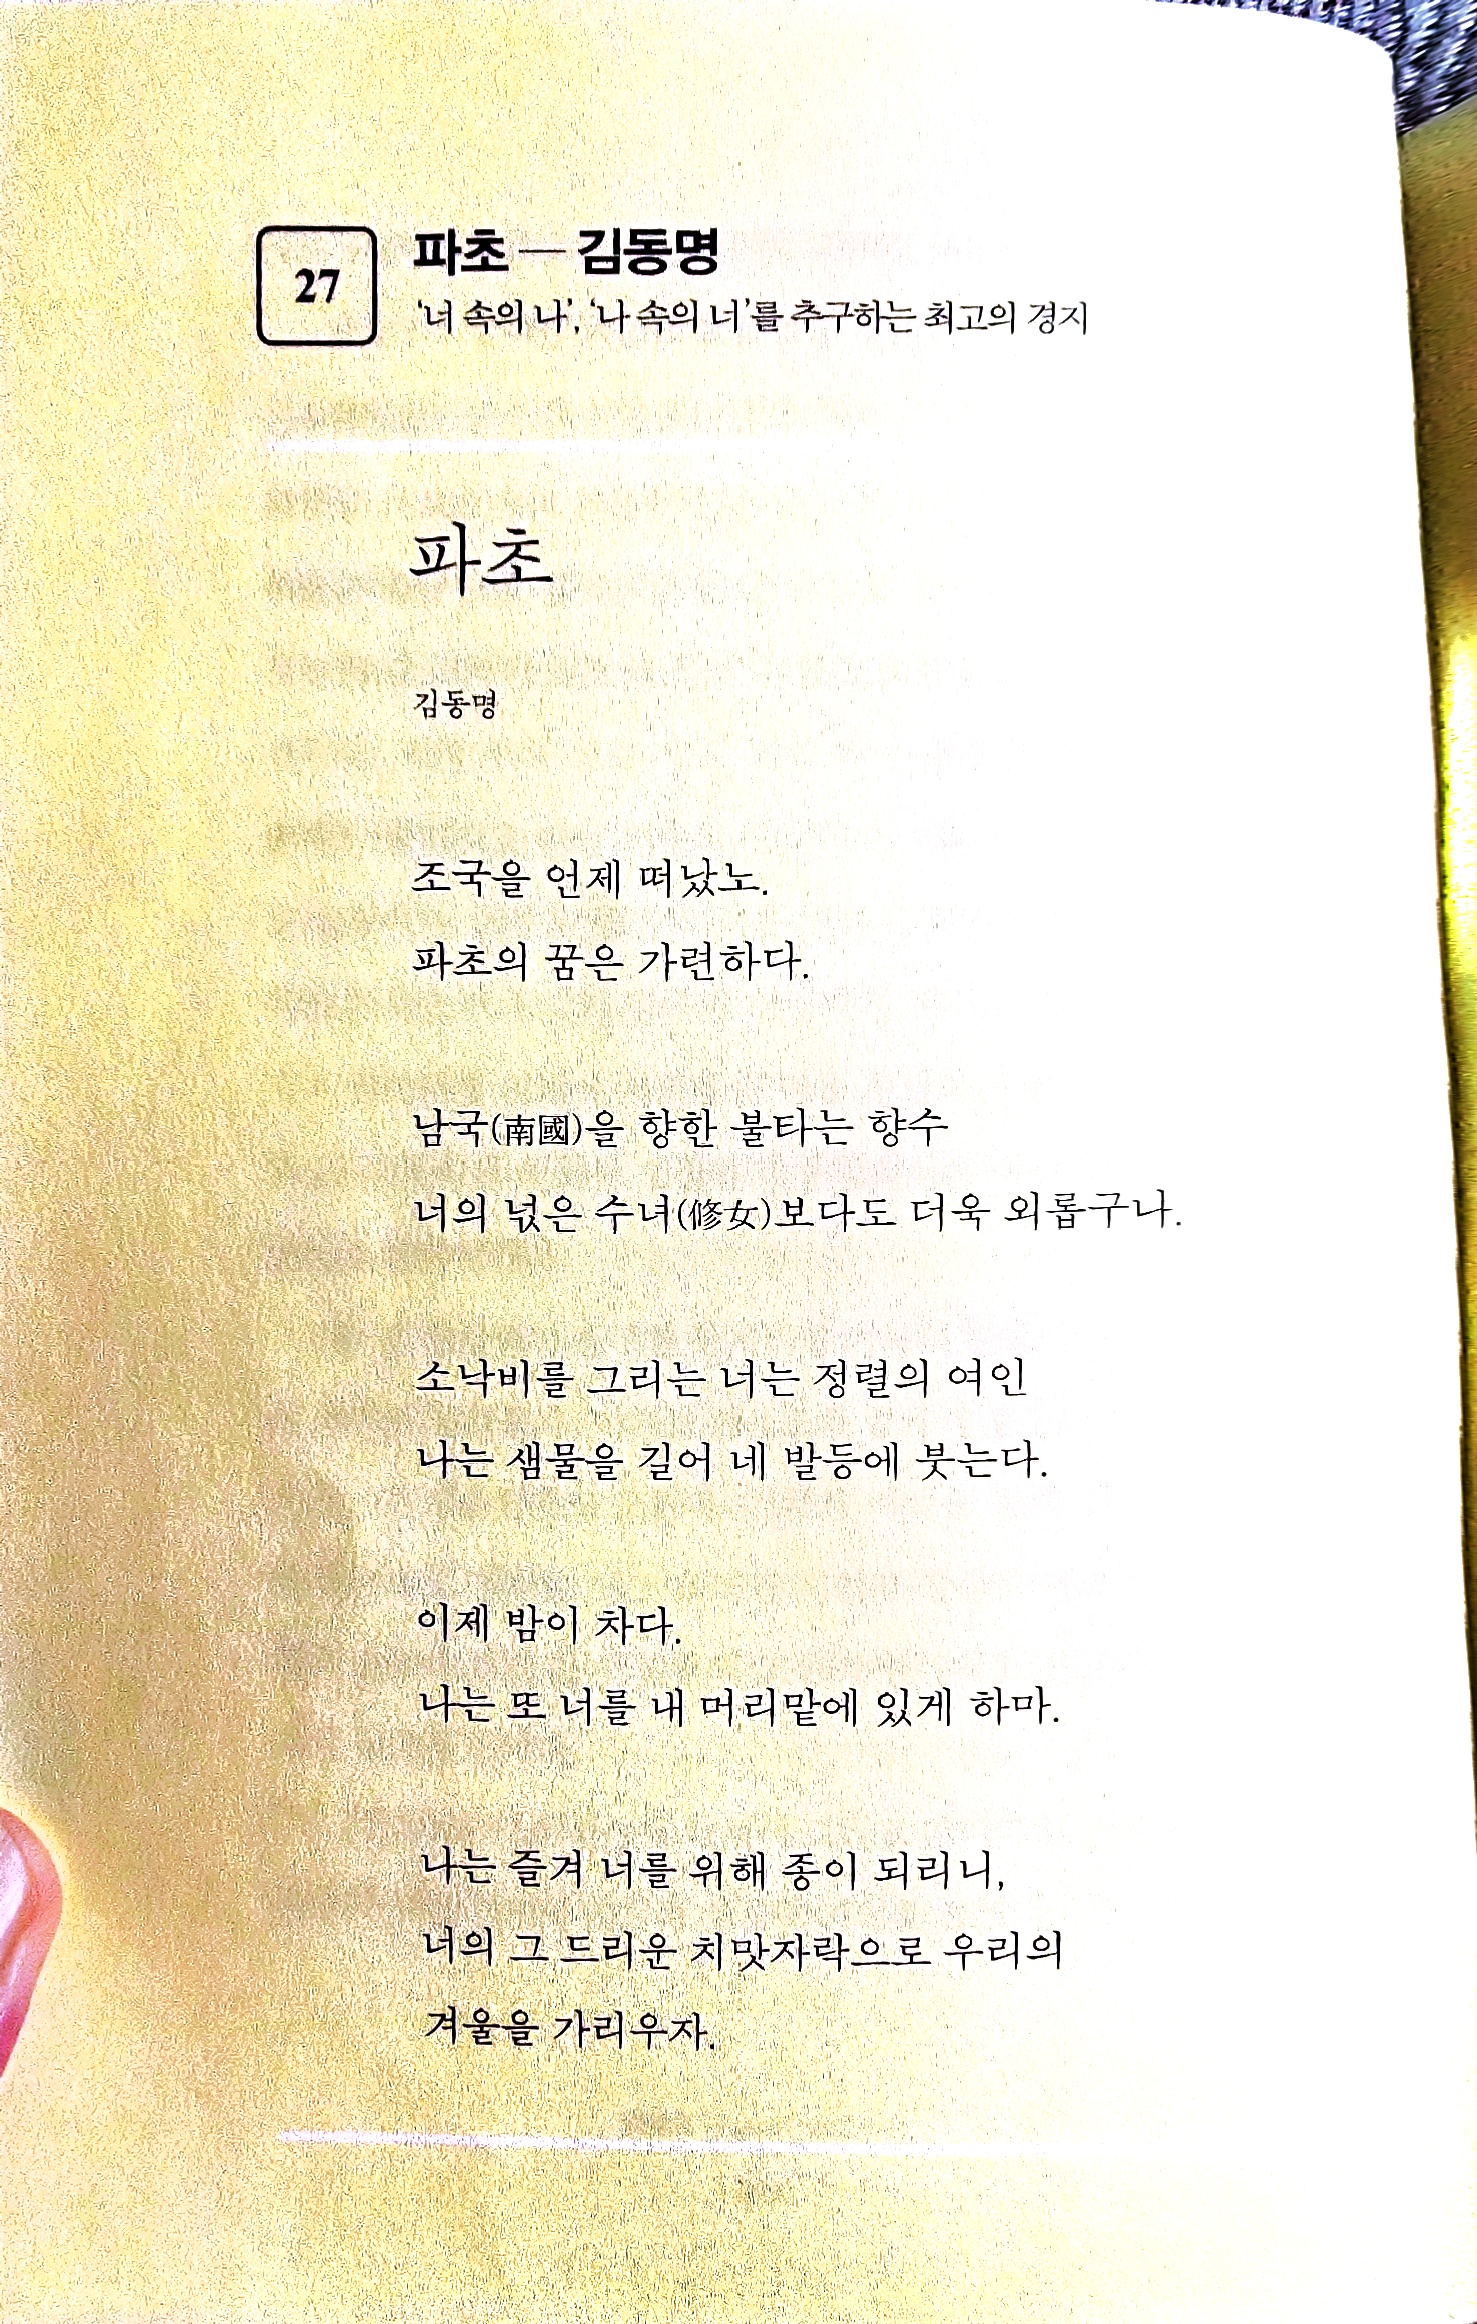 27
파초 — 김동명
'너 속의 나', '나 속의 너'를 추구하는 최고의 경지
파초
김동명
조국을 언제 떠났노.
파초의 꿈은 가련하다.
남국(南國)을 향한 불타는 향수
너의 넋은 수녀(修女)보다도 더욱 외롭구나.
소낙비를 그리는 너는 정렬의 여인
나는 샘물을 길어 네 발등에 붓는다.
이제 밤이 차다.
나는 또 너를 내 머리맡에 있게 하마.
나는 즐겨 너를 위해 종이 되리니,
너의 그 드리운 치맛자락으로 우리의
겨울을 가리우자.